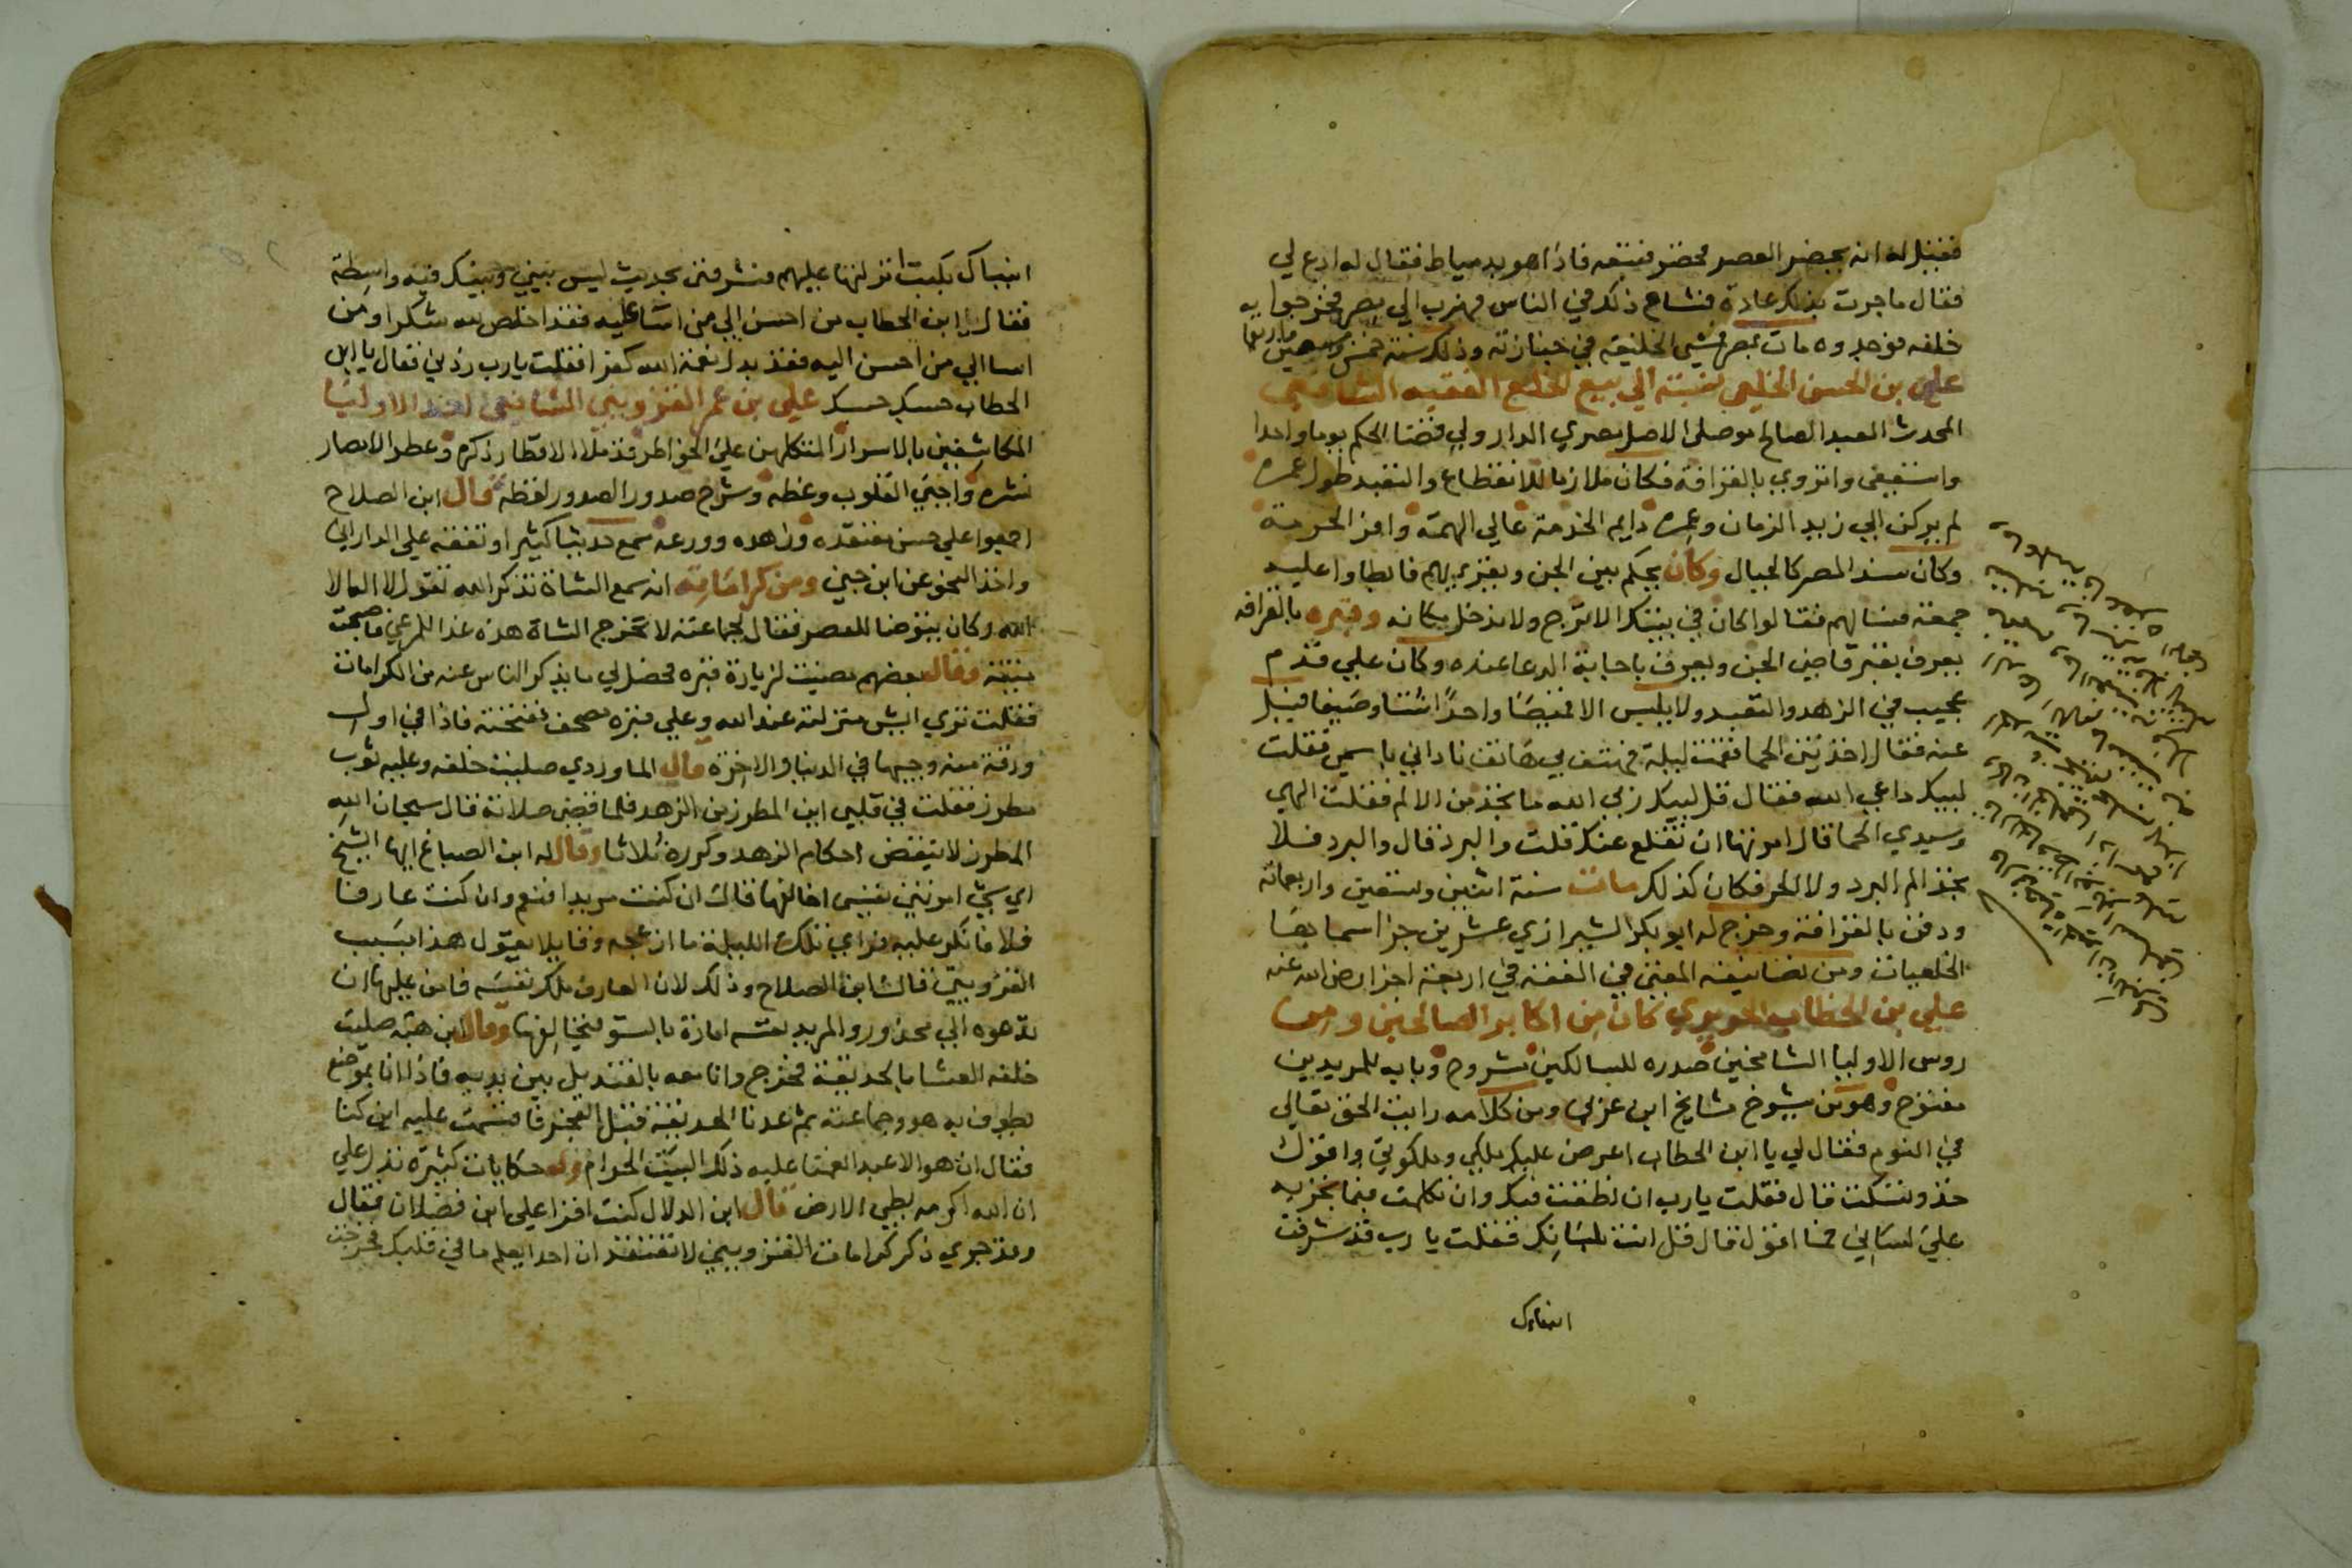 فقيل له انه يحضر العصر فحضر فتبعه فاذا هو بدمياط فقال له ادع لي
فقال ما جرت بذلك عادة فشاع ذلك في الناس فهرب الي مصر فخرجوا به
خلفه فوجدوه مات بمصر فمشي الخليفة في جنازته وذلك سنة خمس
علي بن الحسن الخلعي نسبة الي بيع الخلع الفقيه الشافعي
المحدث العبد الصالح موصلي الاصل مصري الدار ولي قضا الحكم يوما واحدا
واستعفي وانزوي بالقرافة فكان ملازما للانقطاع والتعبد طول عمره
لم يركن الي زيد الزمان وعمره دايم الخدمة عالي الهمة وافر الحرمة
وكان سند المصر كالجبال وكان يحكم بين الجن ويقريهم فابطاوا عليه
جمعة فسالهم فقالوا كان في بيتك الاترج ولا ندخل مكانه وقبره بالقرافه
يعرف بقبر قاضي الجن ويعرف باجابة الدعا عنده وكان علي قدم
عجيب في الزهد والتعبد ولا يلبس الا قميصا واحدا شتا وصيفا فقيل
عنه فقال اخذتني الحما فقمت ليلة فهتف بي هاتف ناداني باسمي فقلت
لبيك داعي الله فقال قل لبيك ربي الله ما تجد من الالم فقلت الهي
وسيدي الحما قال امرتها ان تقلع عنك قلت والبرد قال والبرد فلا
تجد الم البرد ولا الحر فكان كذلك مات سنة اثنين وتسعين واربعمائة
ودفن بالقرافة وخرج له ابو بكر الشيرازي عشرين جزا سماها
الخلعيات ومن تصانيفه المغني في الفقه في اربعة اجزا رضي الله عنه
علي بن الخطاب الجويري كان من اكابر الصالحين ومن
روس الاوليا الشامخين صدره للسالكين مشروح وبابه للمريدين
مفتوح وهو من شيوخ مشايخ ابن عزلي ومن كلامه رايت الحق تعالي
في النوم فقال لي يا ابن الخطاب اعرض عليك ملكي وملكوتي واقول
خذ وتسكت قال فقلت يارب ان نطقت فبك وان تكلمت فبما تجريه
علي لساني فما اقول قال قل انت بلسانك فقلت يا رب قد شرفت
انبياك
انبياك بكتب انزلتها عليهم فشرفني بحديث ليس بيني وبينك فيه واسطة
فقال يا ابن الخطاب من احسن الي من اسا عليه فقد اخلص لله شكرا ومن
اسا الي من احسن اليه فقد بدل نعمة الله كفرا فقلت يارب زدني فقال يا ابن
الخطاب حسبك حسبك علي بن عمر القزويني الشافعي احد الاوليا
المكاشفين بالاسرار المتكلمين علي الخواطر قد ملا الاقطار ذكره وعطر الابصار
نشره واحيي القلوب وعظه وشرح صدور الصدور لفظه قال ابن الصلاح
اجمعوا علي حسن معتقده وزهده وورعه سمع حديثا كثيرا وتفقه علي الداركي
واخذ النحو عن ابن جني ومن كراماته انه سمع الشاة تذكر الله تقول لا اله الا
الله وكان يتوضا للعصر فقال لجماعته لا تخرج الشاة هذه غدا للمرعي فاصبحت
ميتة وقال بعضهم مضيت لزيارة قبره فحضر لي ما يذكر الناس عنه من الكرامات
فقلت تري ايش منزلته عند الله وعلي قبره مصحف ففتحته فاذا في اول
ورقة منه وجيها في الدنيا والاخرة قال الماوردي صليت خلفه وعليه ثوب
مطرز فقلت في قلبي اين المطرز من الزهد فلما قضي صلاته قال سبحان الله
المطرز لا ينقض احكام الزهد وكرره ثلاثا وقال له ابن الصباغ ايها الشيخ
اي شي امرتني نفسي اخالفها قال ان كنت مريدا فنعم وان كنت عارفا
فلا فانكر عليه فراي تلك الليلة ما ازعجه وقايلا يقول هذا بسبب
القزويني قال ابن الصلاح وذلك لان العارف ملك نفسه فامن عليها ان
تدعوه الي محذور والمريد نفسه امارة بالسو فيخالفها وقال ابن هبة صليت
خلفه العشا بالحديقة فخرج وانا معه بالقنديل بين يديه فاذا انا بموضع
يطوف به هو وجماعة ثم عدنا الحديقة قبل الفجر فاقسمت عليه اين كنا
فقال ان هو الا عبد انعمنا عليه ذلك البيت الحرام وله حكايات كثيرة تدل علي
ان الله اكرمه بطي الارض قال ابن الدلال كنت اقرا علي ابن فضلان فقال
وقد جري ذكر كرامات القزويني لا تعتقد ان احدا يعلم ما في قلبك فخرجت